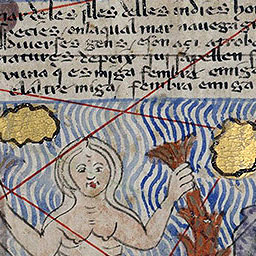 mar de les illes delles indies ho
species en la qual mar navega g
diverses gens e son açi atrob
natures de peix
una q es miga fembra e mig
e laltre miga fembra e miga